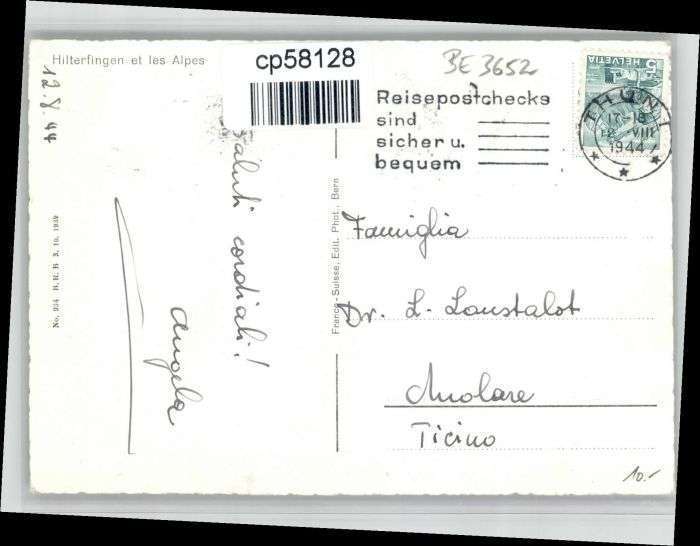 Hilterfingen et les Alpes
cp58128
BE 3652
Reisepostchecks
sind
sicher u.
bequem
5
HELVETIA
THUN 1
17-18
12 VIII
1944
12.8.44
Saluti cordiali!
Angela
No. 254 B.R.B 3. 10. 1939
Franco-Suisse, Edit. Phot., Bern
Famiglia
Dr. L. Loustalot
Muolare
Ticino
10.-